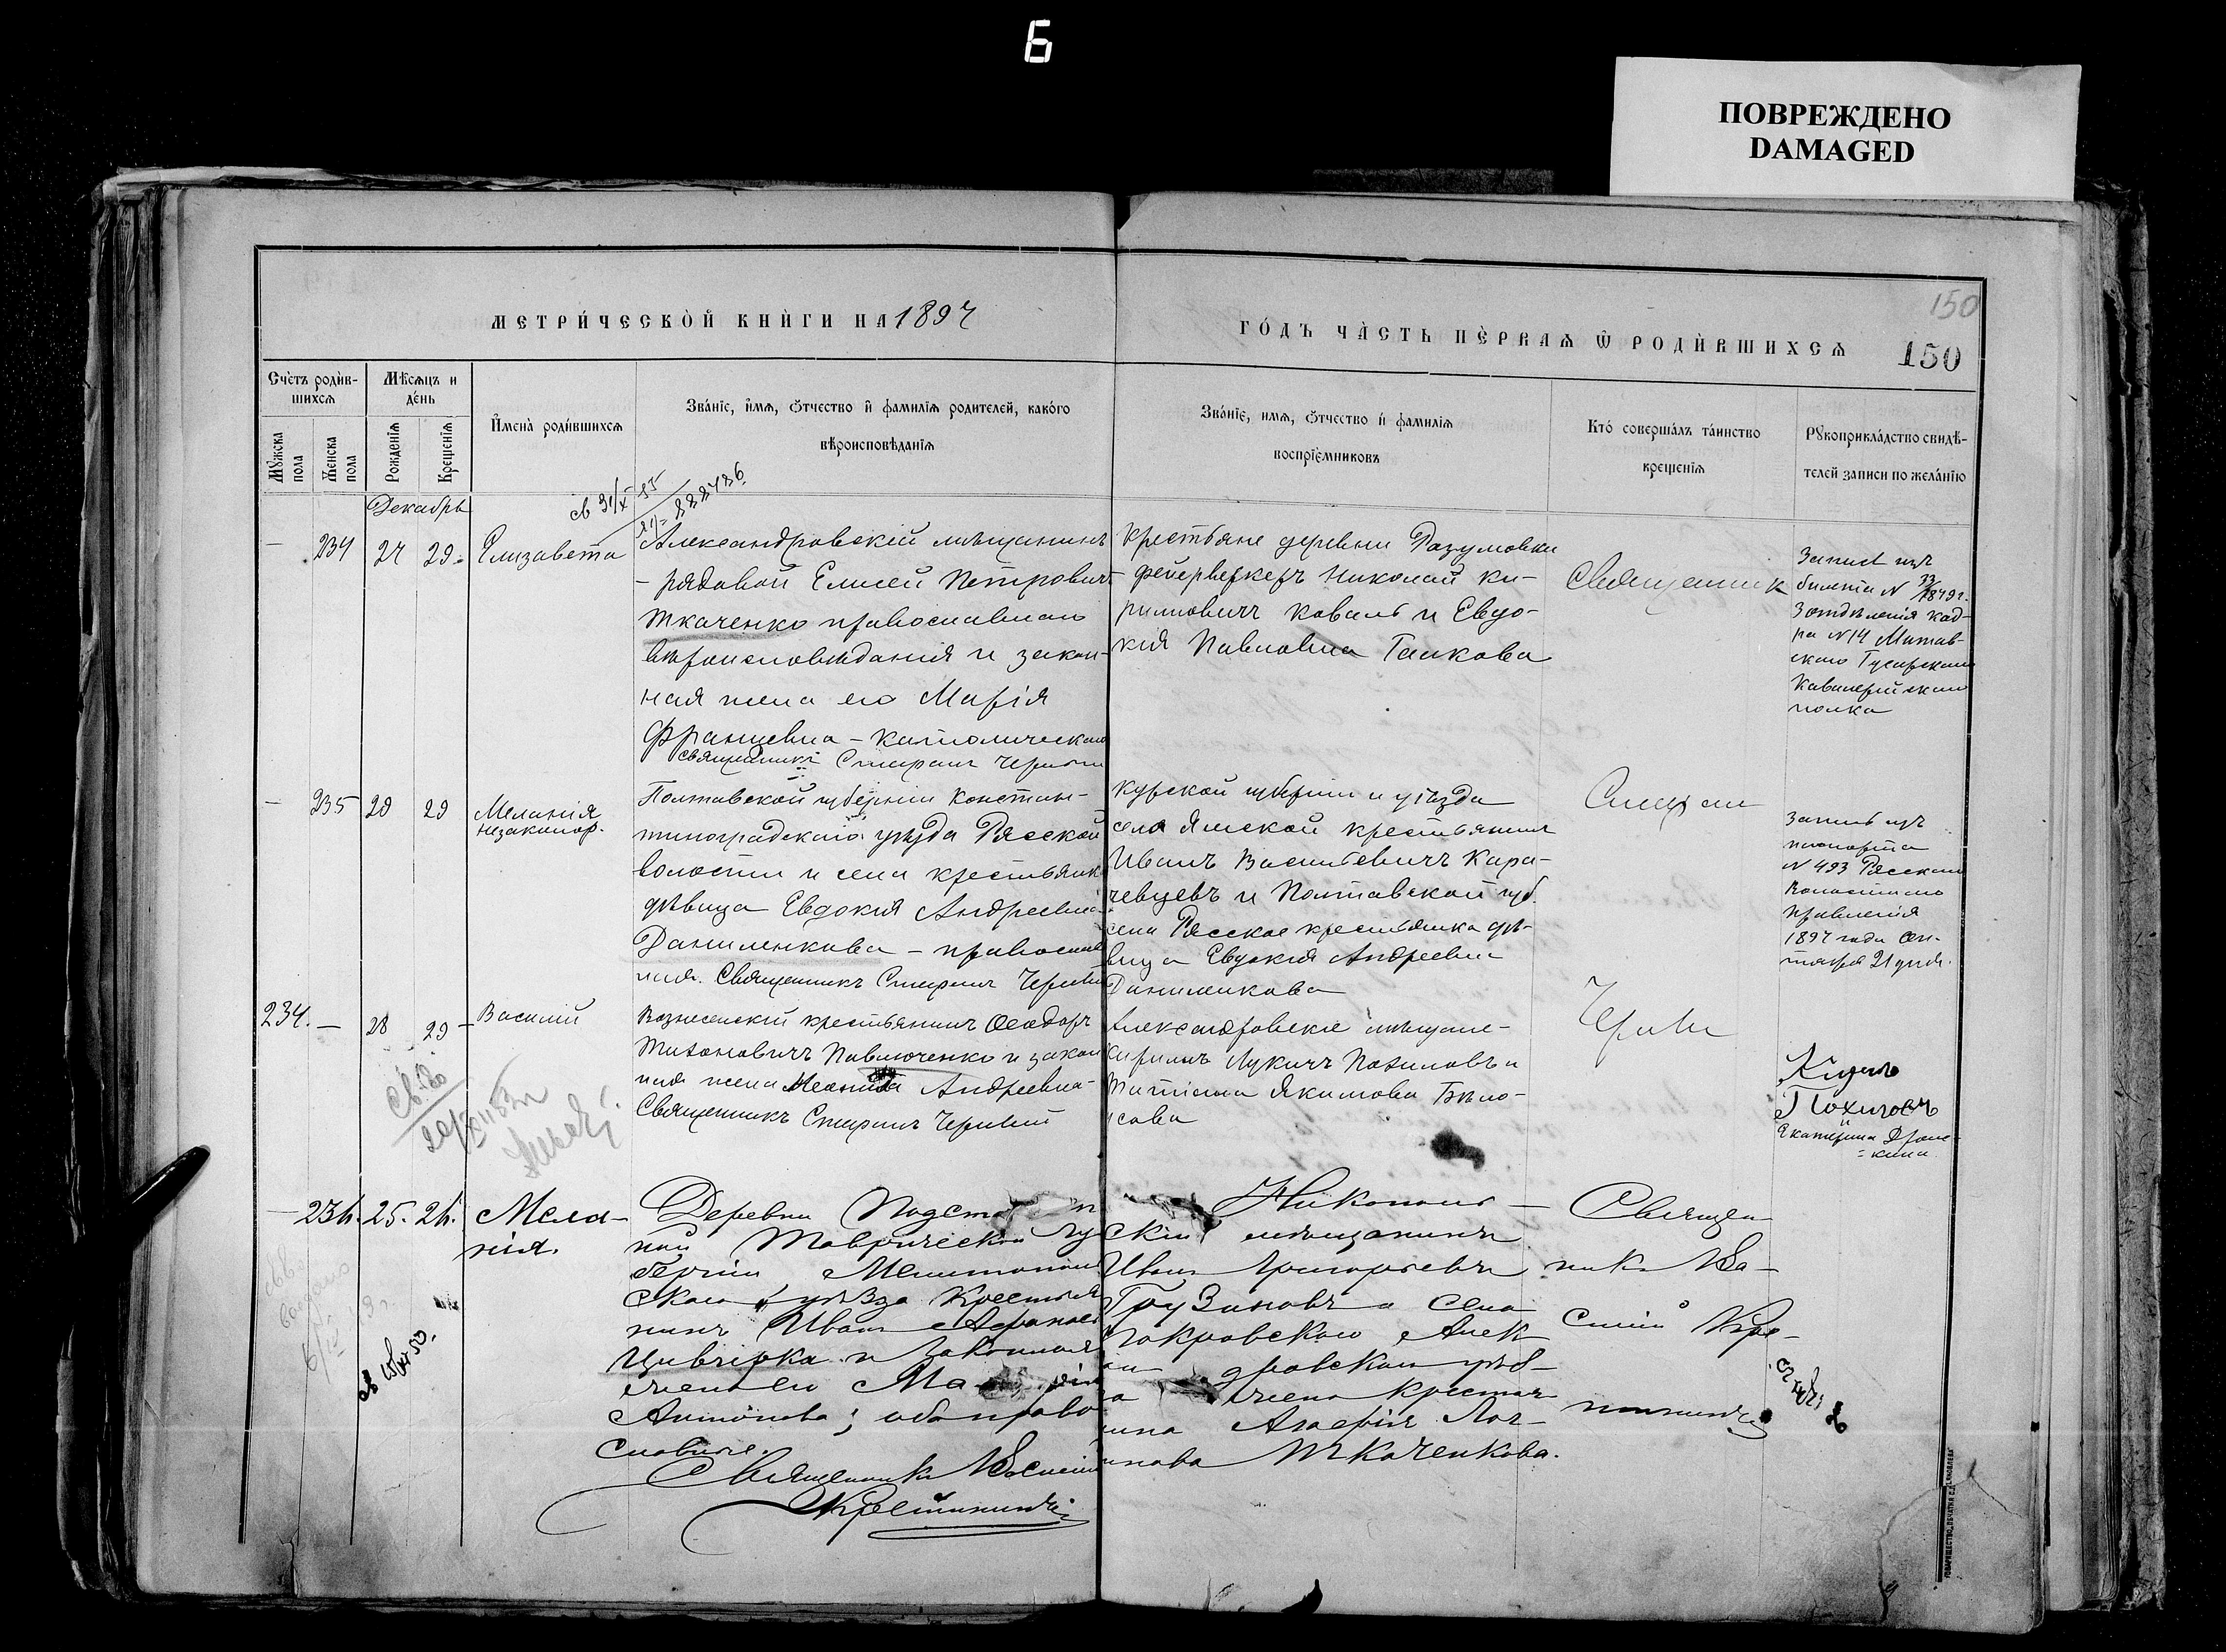 Б
ПОВРЕЖДЕНО
DAMAGED
150
МЕТРИ́ЧЕСКОЙ КНИ́ГИ НА 1897
ГО́ДЪ ЧА́СТЬ ПЕ́РВАѦ Ѿ РОДИ́ВШИХСѦ
150
Сче́тъ роди́в-
шихсѧ
Мѣ́сѧцъ и
де́нь
Мꙋ́жска
пола
Же́нска
пола
Рожденїѧ
Крещенїѧ
И҆мена̀ роди́вшихсѧ
Зва́нїе, и҆́мѧ, ѻ҆́тчество и҆ фамилїѧ родителей, како́го
вѣроисповѣ́данїѧ
Зва́нїе, имѧ, ѻ҆́тчество и҆ фамилїѧ
воспрїе́мниковъ
Кто́ соверша́лъ та́инство
крещенїѧ
Рꙋкоприкла́дство свидѣ́-
телей записи по жела́нїю
Декабрь
234 27 29. Елизавета
Александровскій мѣщанинъ
- рядовой Елисей Петровичъ
Ткаченко православнаго
вѣроисповѣданія и закон-
ная жена его Марія
Францевна - католическаго
Священникъ Спиридон
Крестьяне деревни Разумовки
фейерверкеръ Николай Ки-
риллович Коваль и Евдо-
кія Павловна Галкова
Священник
Запись изъ
билета N
отдѣленія кад-
ра N 14 Митав-
скаго Гусарскаго
Кавалерійскаго
полка
235 28 29 Меланія
незаконор.
Полтавской губерніи Констан-
тиноградскаго уѣзда Рясской
волости и села крестьянк
дѣвица Евдокія Андреевна
Даниленкова - православ
ная. Священникъ Спиридон
Курской губерніи и уѣзда
села Ямской крестьянин
Иванъ Васильевичъ Кара-
чевцевъ и Полтавской губ.
села Рясское крестьянка дѣ-
вица Евдокія Андреевна
Даниленкова
Спиридон
Запись изъ
паспорта
N 493 Рясскаго
Волостнаго
Правленія
1897 года Сен-
тября 21 дня.
234. - 28 29 - Василій
Вознесенскій крестьянинъ Ѳеодоръ
Тихоновичъ Павлюченко и закон
ная жена Андреевна -
Священникъ Спиридон
Александровскіе мѣщане -
Кириллъ Лукичъ Похиловъ и
Татіана Якимова Бѣло-
усова
Похиловъ
и
Екатерина
236. 25. 26. Мела-
нія.
Деревни
ной Таврической Гу
берніи Мелитополь
скаго уѣзда Крестья
нинъ Иван
и Законная
жена его
Антонова; оба право
славные.
Священникъ Василій
Никополь -
скій мѣщанинъ
Иван Григорьевъ
Грузиновъ и села
Покровскаго Алек
дровскаго уѣз -
жена Крестья
нина Агафія Лог -
инова Ткаченкова.
Священ
никъ Ва -
силій Кре -
ТОВАРИЩЕСТВО „ПЕЧАТНЯ С.П. ЯКОВЛЕВА“